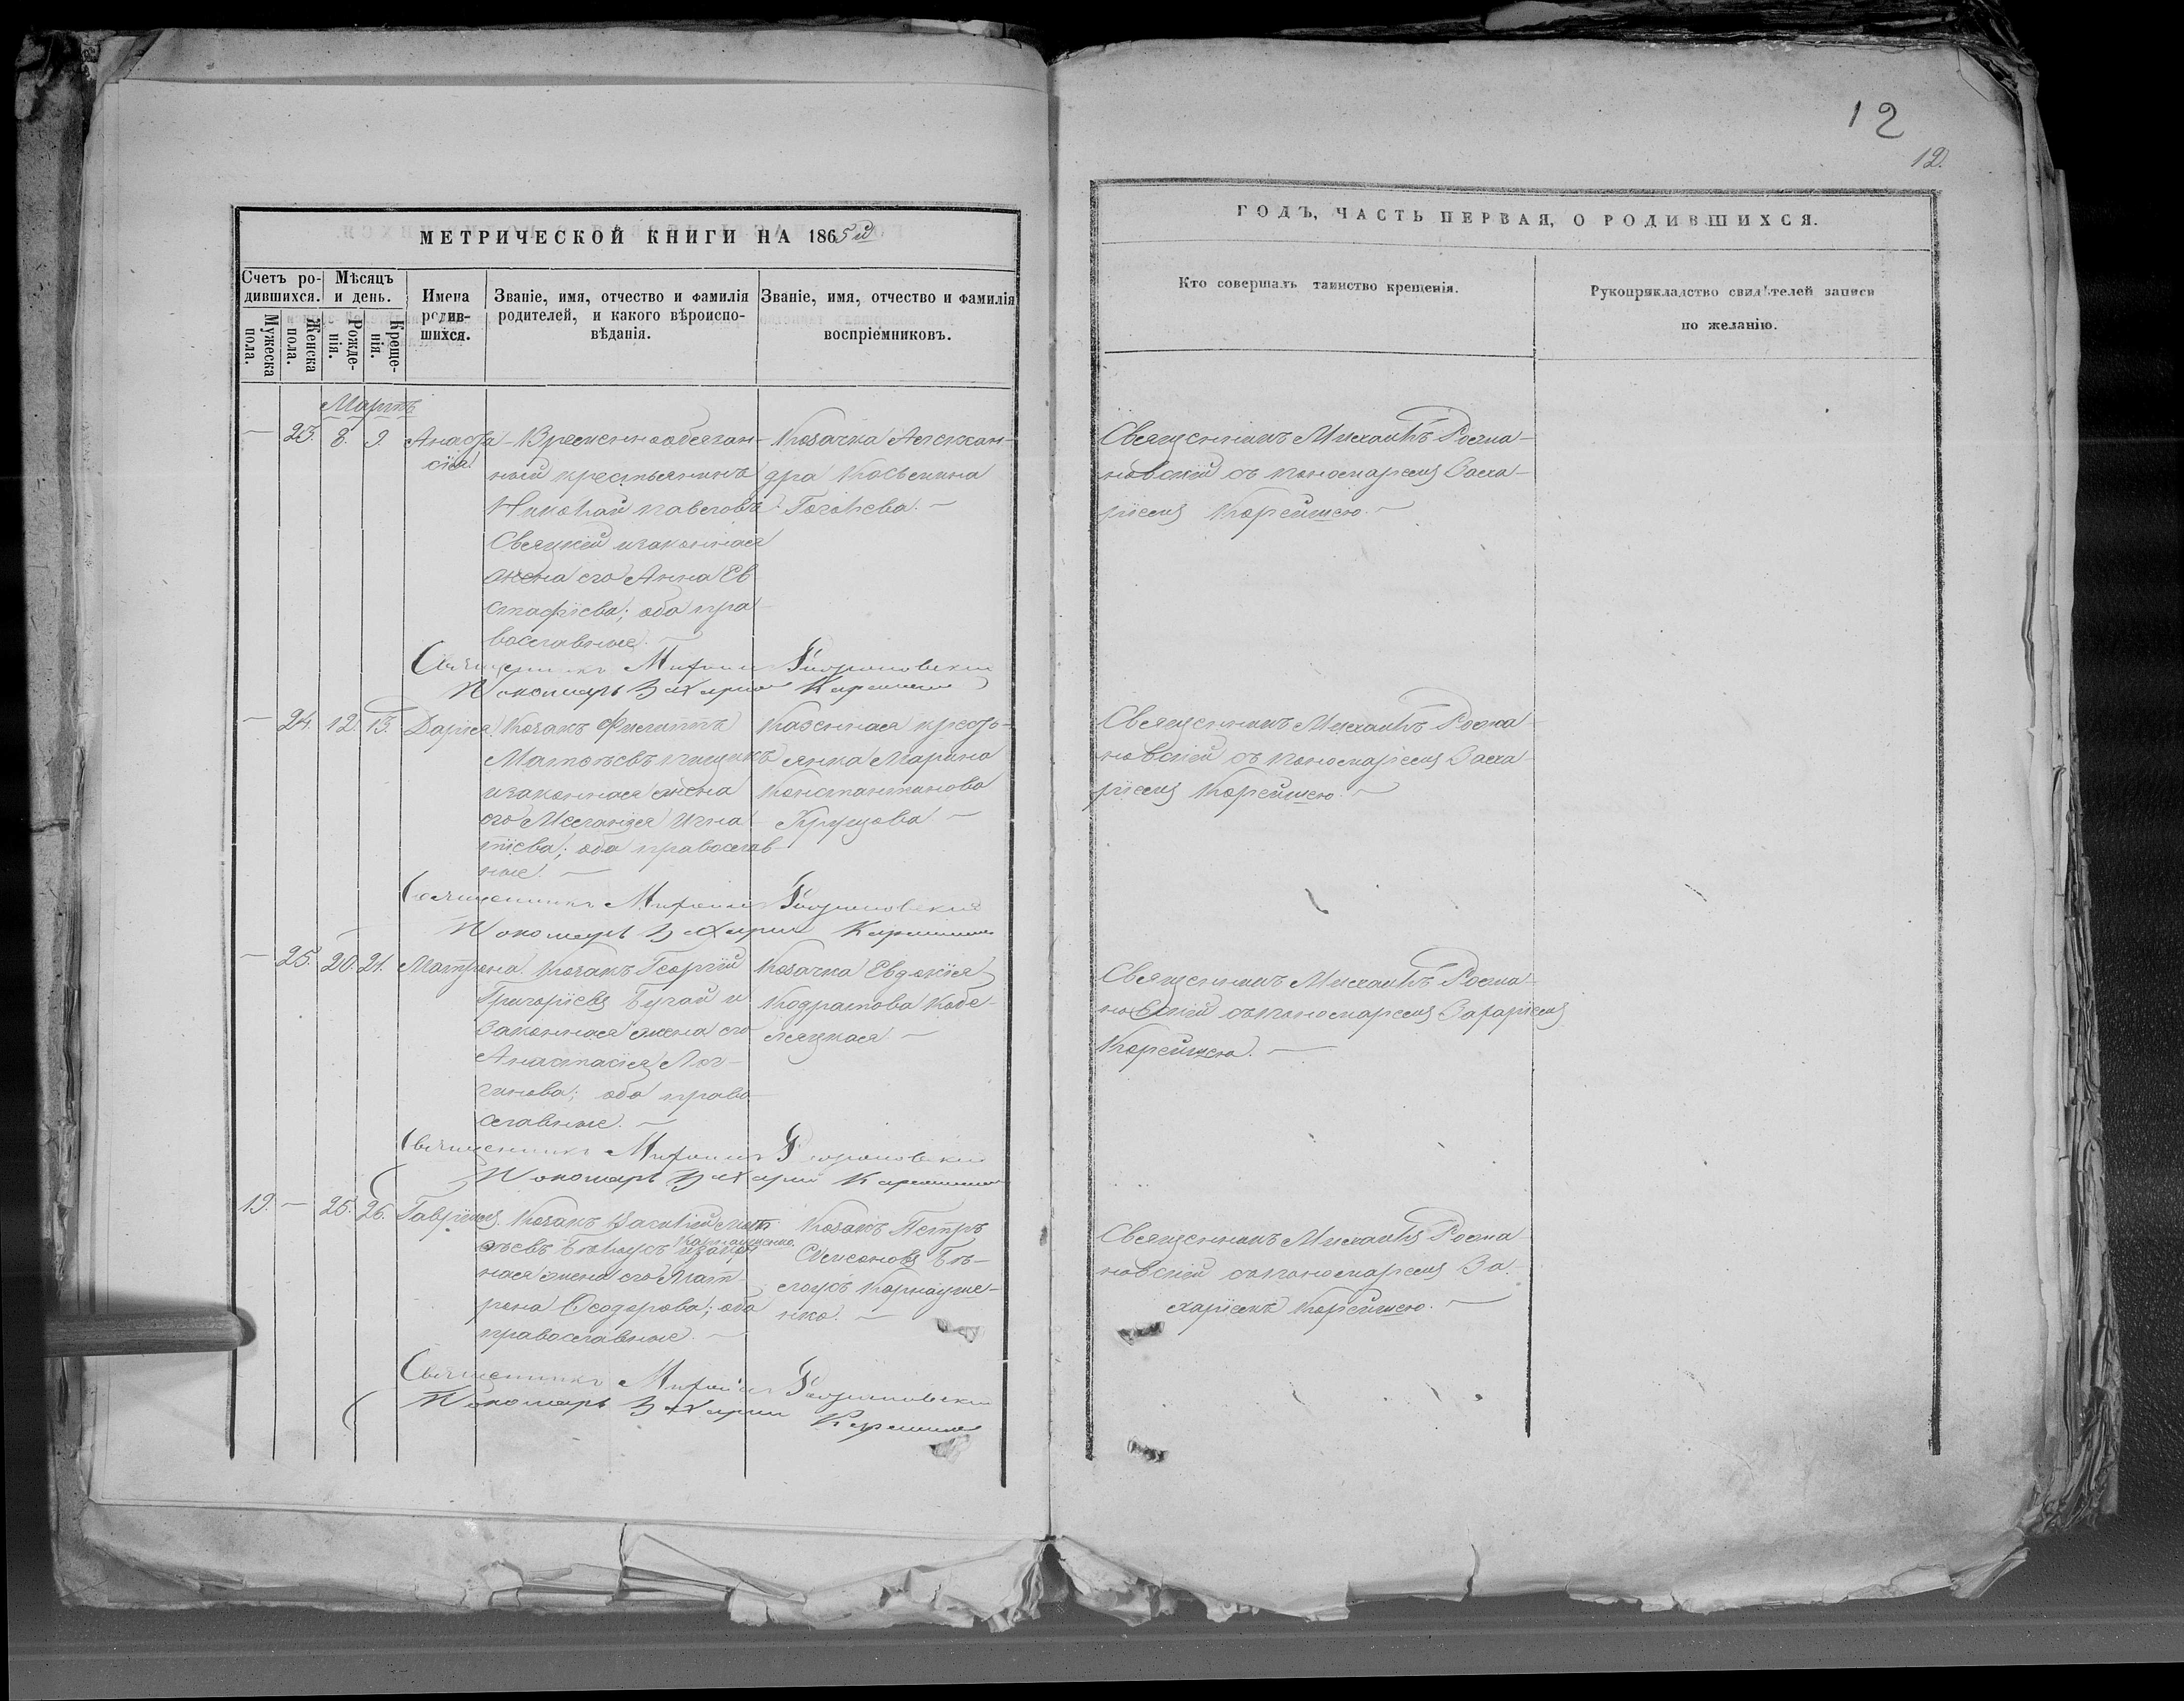 12
12.
МЕТРИЧЕСКОЙ КНИГИ НА 1865й
ГОДЪ, ЧАСТЬ ПЕРВАЯ, О РОДИВШИХСЯ.
Счетъ родившихся.
Мужеска пола.
Женска пола.
Мѣсяцъ и день.
Рожденія.
Крещенія.
Имена родившихся.
Званіе, имя, отчество и фамилія родителей, и какого вѣроисповѣданія.
Званіе, имя, отчество и фамилія воспріемниковъ.
Кто совершалъ таинство крещенія.
Рукоприкладство свидѣтелей записи по желанію.
Мартъ
— 23. 8. 9.
Временнообязан-
ный крестьянинъ
Николай Павловъ
Святскій изаконная
жена его Анна Ев
стафіева; оба пра
вославные. —
Козачка Александра
дра Косьмина
Гоголева. —
Священникъ Михаилъ Рома-
новскій съ пономаремъ Заха-
ріемъ
Священникъ Михаилъ Романовскій
Пономарь Захарій
— 24. 12. 13. Дарія.
Козакъ Филиппъ
Матвѣевъ
изаконная жена
его Меланія Игна
тіева; оба православ
ные. —
Казенная кресть-
янка Марина
Константинова
Священникъ Михаилъ Рома
новскій съ пономаремъ Заха
ріемъ
Священникъ Михаилъ Романовскій
Пономарь Захарій
— 25. 20. 21. Матрона.
Козакъ Георгій
Григоріевъ Бугай и
законная жена его
Анастасія Лог-
гинова; оба право
славные. —
Козачка Евдокія
Кодратова Кобе-
ляцкая —
Священникъ Михаилъ Рома
новскій съ пономаремъ Захаріемъ
Священникъ Михаилъ Романовскій
Пономарь Захарій
19. — 25. 26. Гавріилъ.
Козакъ Василій Мат
вѣевъ Бѣлоусъ Карнаушенко изакон
ная жена его Мат
рона Ѳеодорова; оба
православные. —
Козакъ Петръ
Симеоновъ Бѣ-
лоусъ Карнауше-
нко. —
Священникъ Михаилъ Рома
новскій съ пономаремъ За
харіемъ
Священникъ Михаилъ Романовскій
Пономарь Захарій